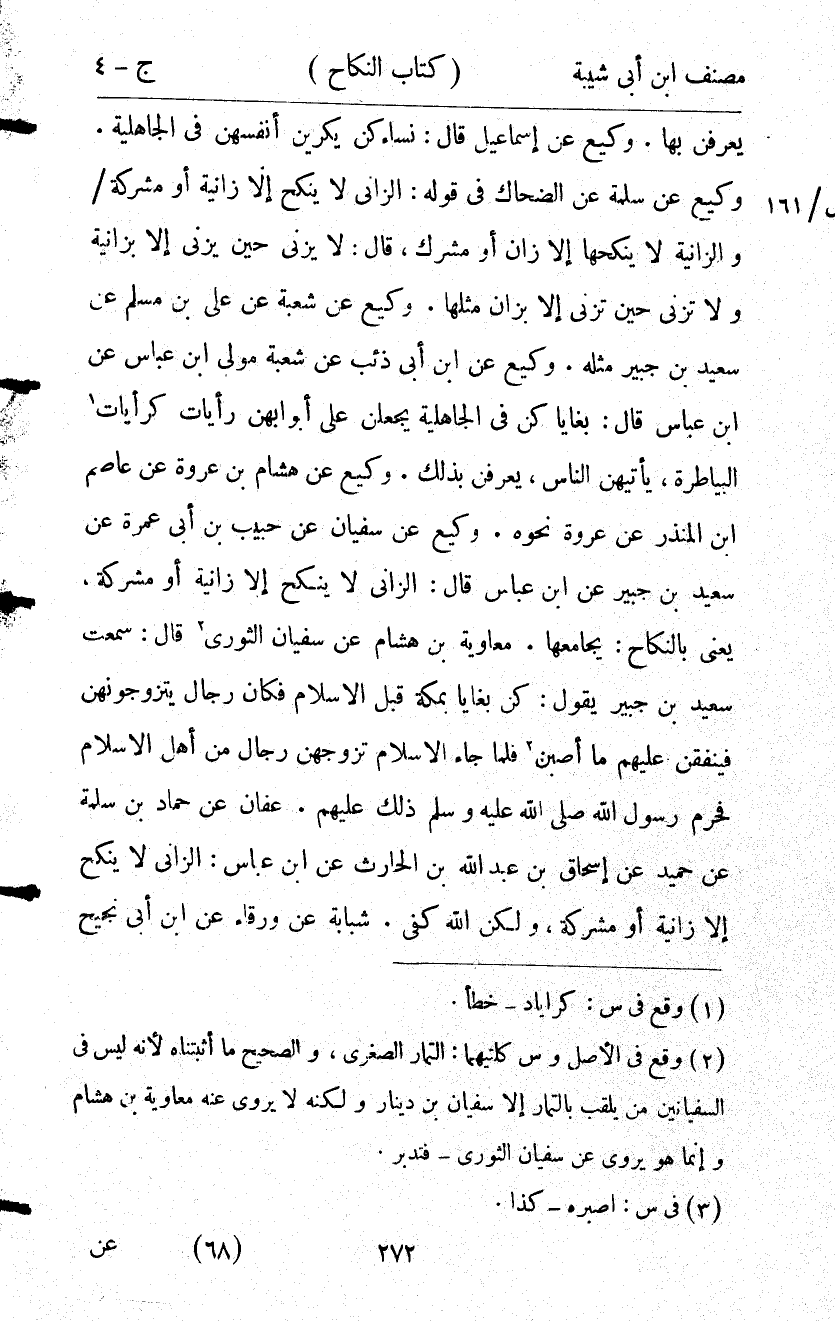 مصنف ابن أبى شيبة ( كتاب النكاح ) ج – ٤
يعرفن بها . وكيع عن إسماعيل قال : نساءكن يكرين أنفسهن فى الجاهلية .
س/١٦١ وكيع عن سلمة عن الضحاك فى قوله : الزانى لا ينكح إلا زانية أو مشركة/
و الزانية لا ينكحها إلا زان أو مشرك ، قال : لا يزنى حين يزنى إلا بزانية
و لا تزنى حين تزنى إلا بزان مثلها . وكيع عن شعبة عن على بن مسلم عن
سعيد بن جبير مثله . وكيع عن ابن أبى ذئب عن شعبة مولى ابن عباس عن
ابن عباس قال : بغايا كن فى الجاهلية يجعلن على أبوابهن رأيات كرأيات١
البياطرة ، يأتيهن الناس ، يعرفن بذلك . وكيع عن هشام بن عروة عن عاصم
ابن المنذر عن عروة نحوه . وكيع عن سفيان عن حبيب بن أبى عمرة عن
سعيد بن جبير عن ابن عباس قال : الزانى لا ينكح إلا زانية أو مشركة ،
يعنى بالنكاح : يجامعها . معاوية بن هشام عن سفيان الثورى٢ قال : سمعت
سعيد بن جبير يقول : كن بغايا بمكة قبل الاسلام فكان رجال يتزوجونهن
فينفقن عليهم ما أصبن٣ فلما جاء الاسلام تزوجهن رجال من أهل الاسلام
فحرم رسول الله صلى الله عليه و سلم ذلك عليهم . عفان عن حماد بن سلمة
عن حميد عن إسحاق بن عبد الله بن الحارث عن ابن عباس : الزانى لا ينكح
إلا زانية أو مشركة ، و لكن الله كفى . شبابة عن ورقاء عن ابن أبى نجيح
(١) وقع فى س : كراياد – خطأ .
(٢) وقع فى الأصل و س كلتيهما : التمار الصغرى ، و الصحيح ما أثبتناه لأنه ليس فى
السفيانين من يلقب بالتمار إلا سفيان بن دينار و لكنه لا يروى عنه معاوية بن هشام
و إنما هو يروى عن سفيان الثورى – فتدبر .
(٣) فى س : اصبره – كذا .
٢٧٢ (٦٨) عن